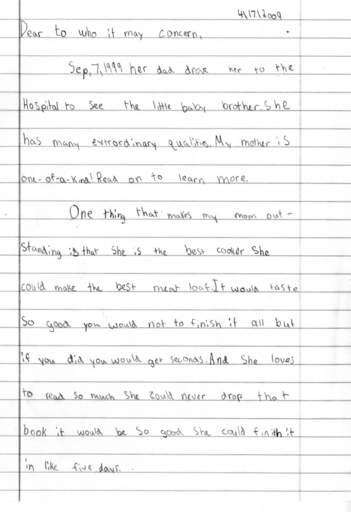 4/17/2009
Dear to who it may concern,
Sep, 7, 1999 her dad drove her to the
Hospital to see the little baby brother. She
has many extrordinary qualities. My mother is
one-of-a-kind! Read on to learn more.
One thing that makes my mom out-
standing is that she is the best cooker She
could make the best meat loaf. It would taste
So good you would not to finish it all but
if you did you would get seconds. And She loves
to read so much she could never drop that
book it would be so good she could finish it
in like five days.